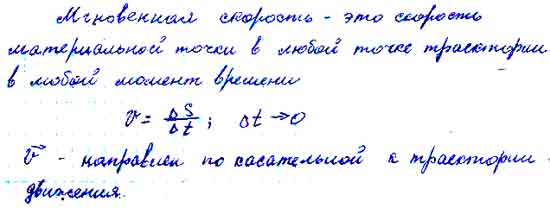 Мгновенная скорость - это скорость
материальной точки в любой точке траектории
в любой момент времени
v = ΔS/Δt ; Δt → 0
v⃗ - направлен по касательной к траектории
движения.